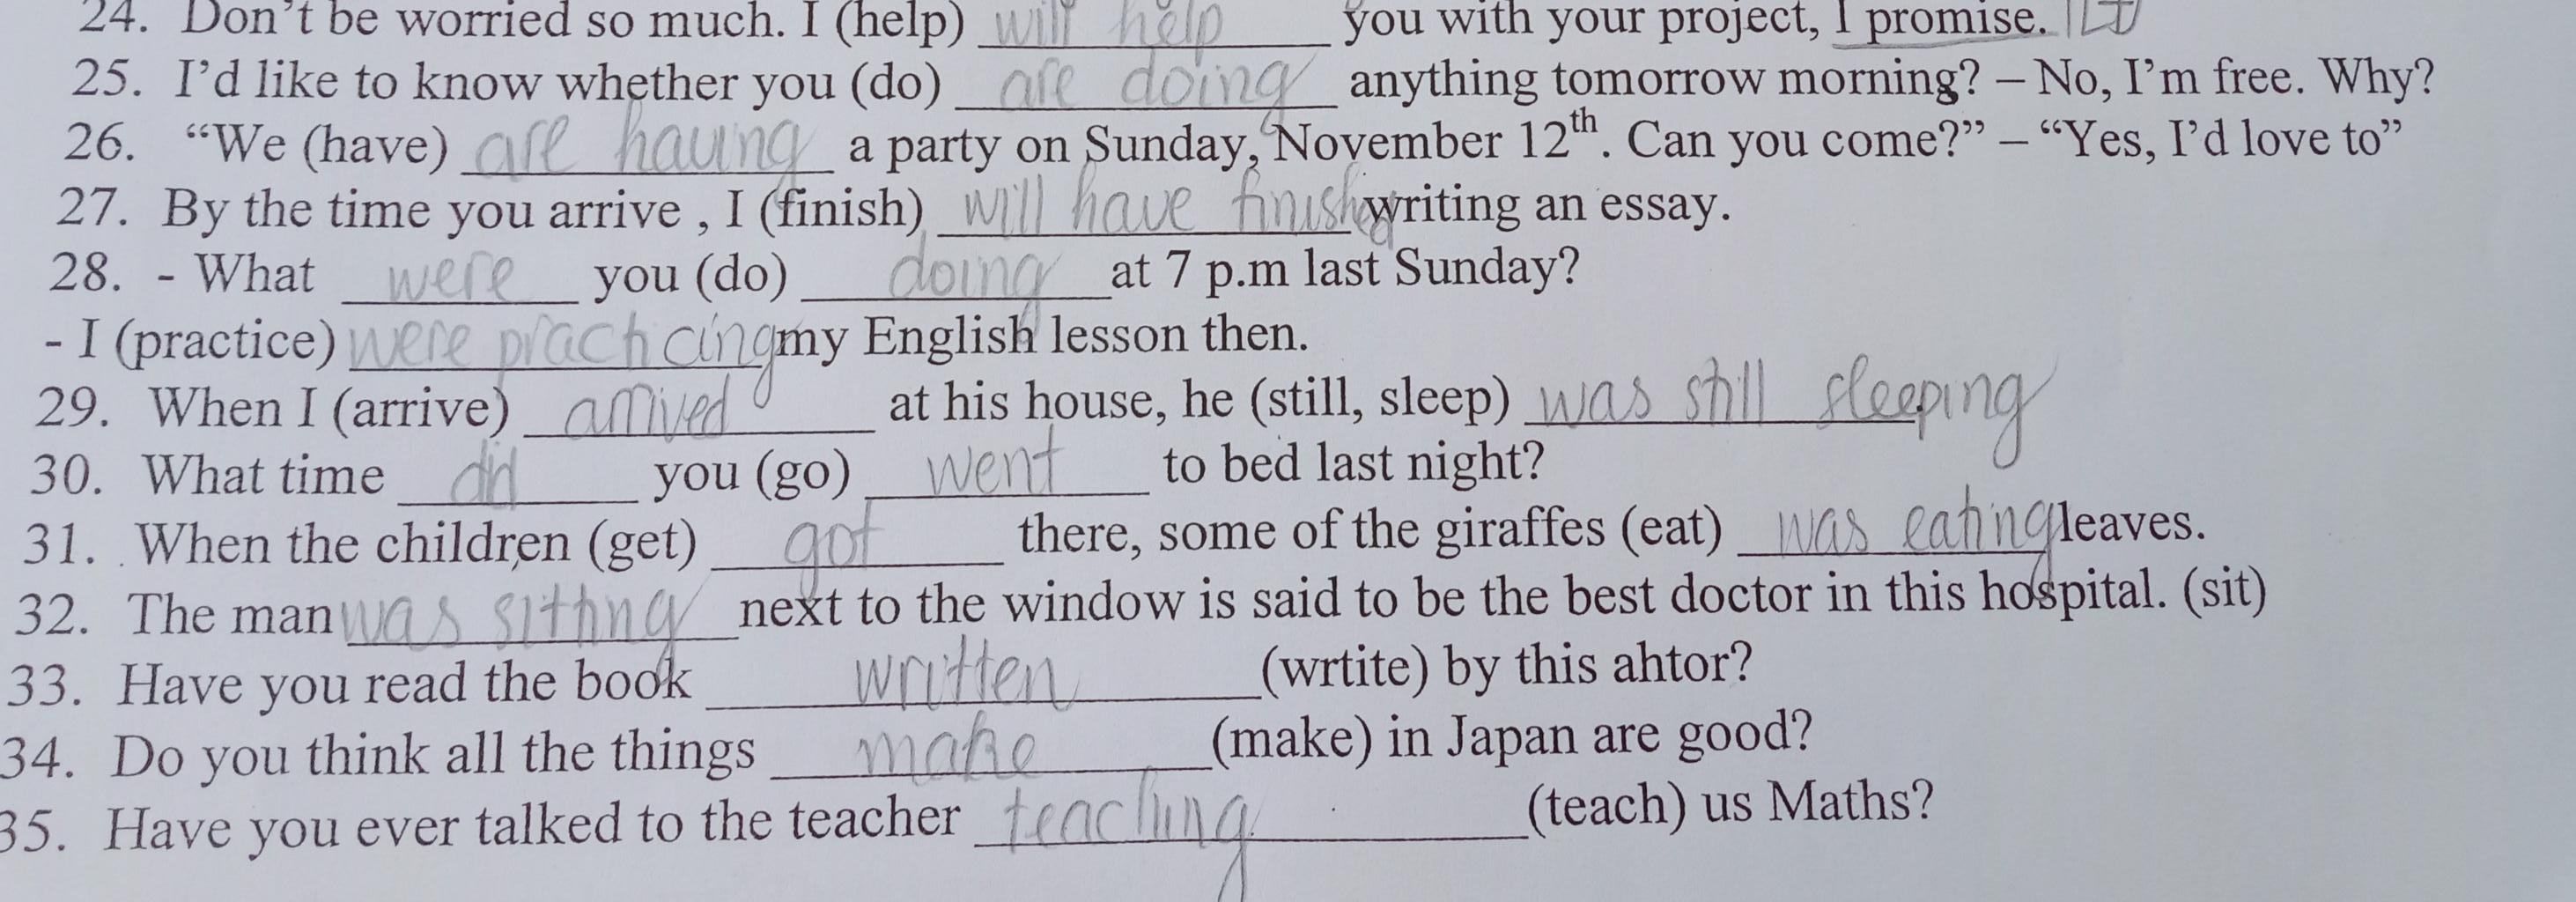 24. Don't be worried so much. I (help) will help you with your project, I promise.
25. I'd like to know whether you (do) are doing anything tomorrow morning? – No, I'm free. Why?
26. “We (have) are having a party on Sunday, November 12th. Can you come?” – “Yes, I'd love to”
27. By the time you arrive , I (finish) will have finished writing an essay.
28. - What were you (do) doing at 7 p.m last Sunday?
- I (practice) were practicing my English lesson then.
29. When I (arrive) arrived at his house, he (still, sleep) was still sleeping
30. What time did you (go) went to bed last night?
31. When the children (get) got there, some of the giraffes (eat) was eating leaves.
32. The man was sitting next to the window is said to be the best doctor in this hospital. (sit)
33. Have you read the book written (wrtite) by this ahtor?
34. Do you think all the things make (make) in Japan are good?
35. Have you ever talked to the teacher teaching (teach) us Maths?